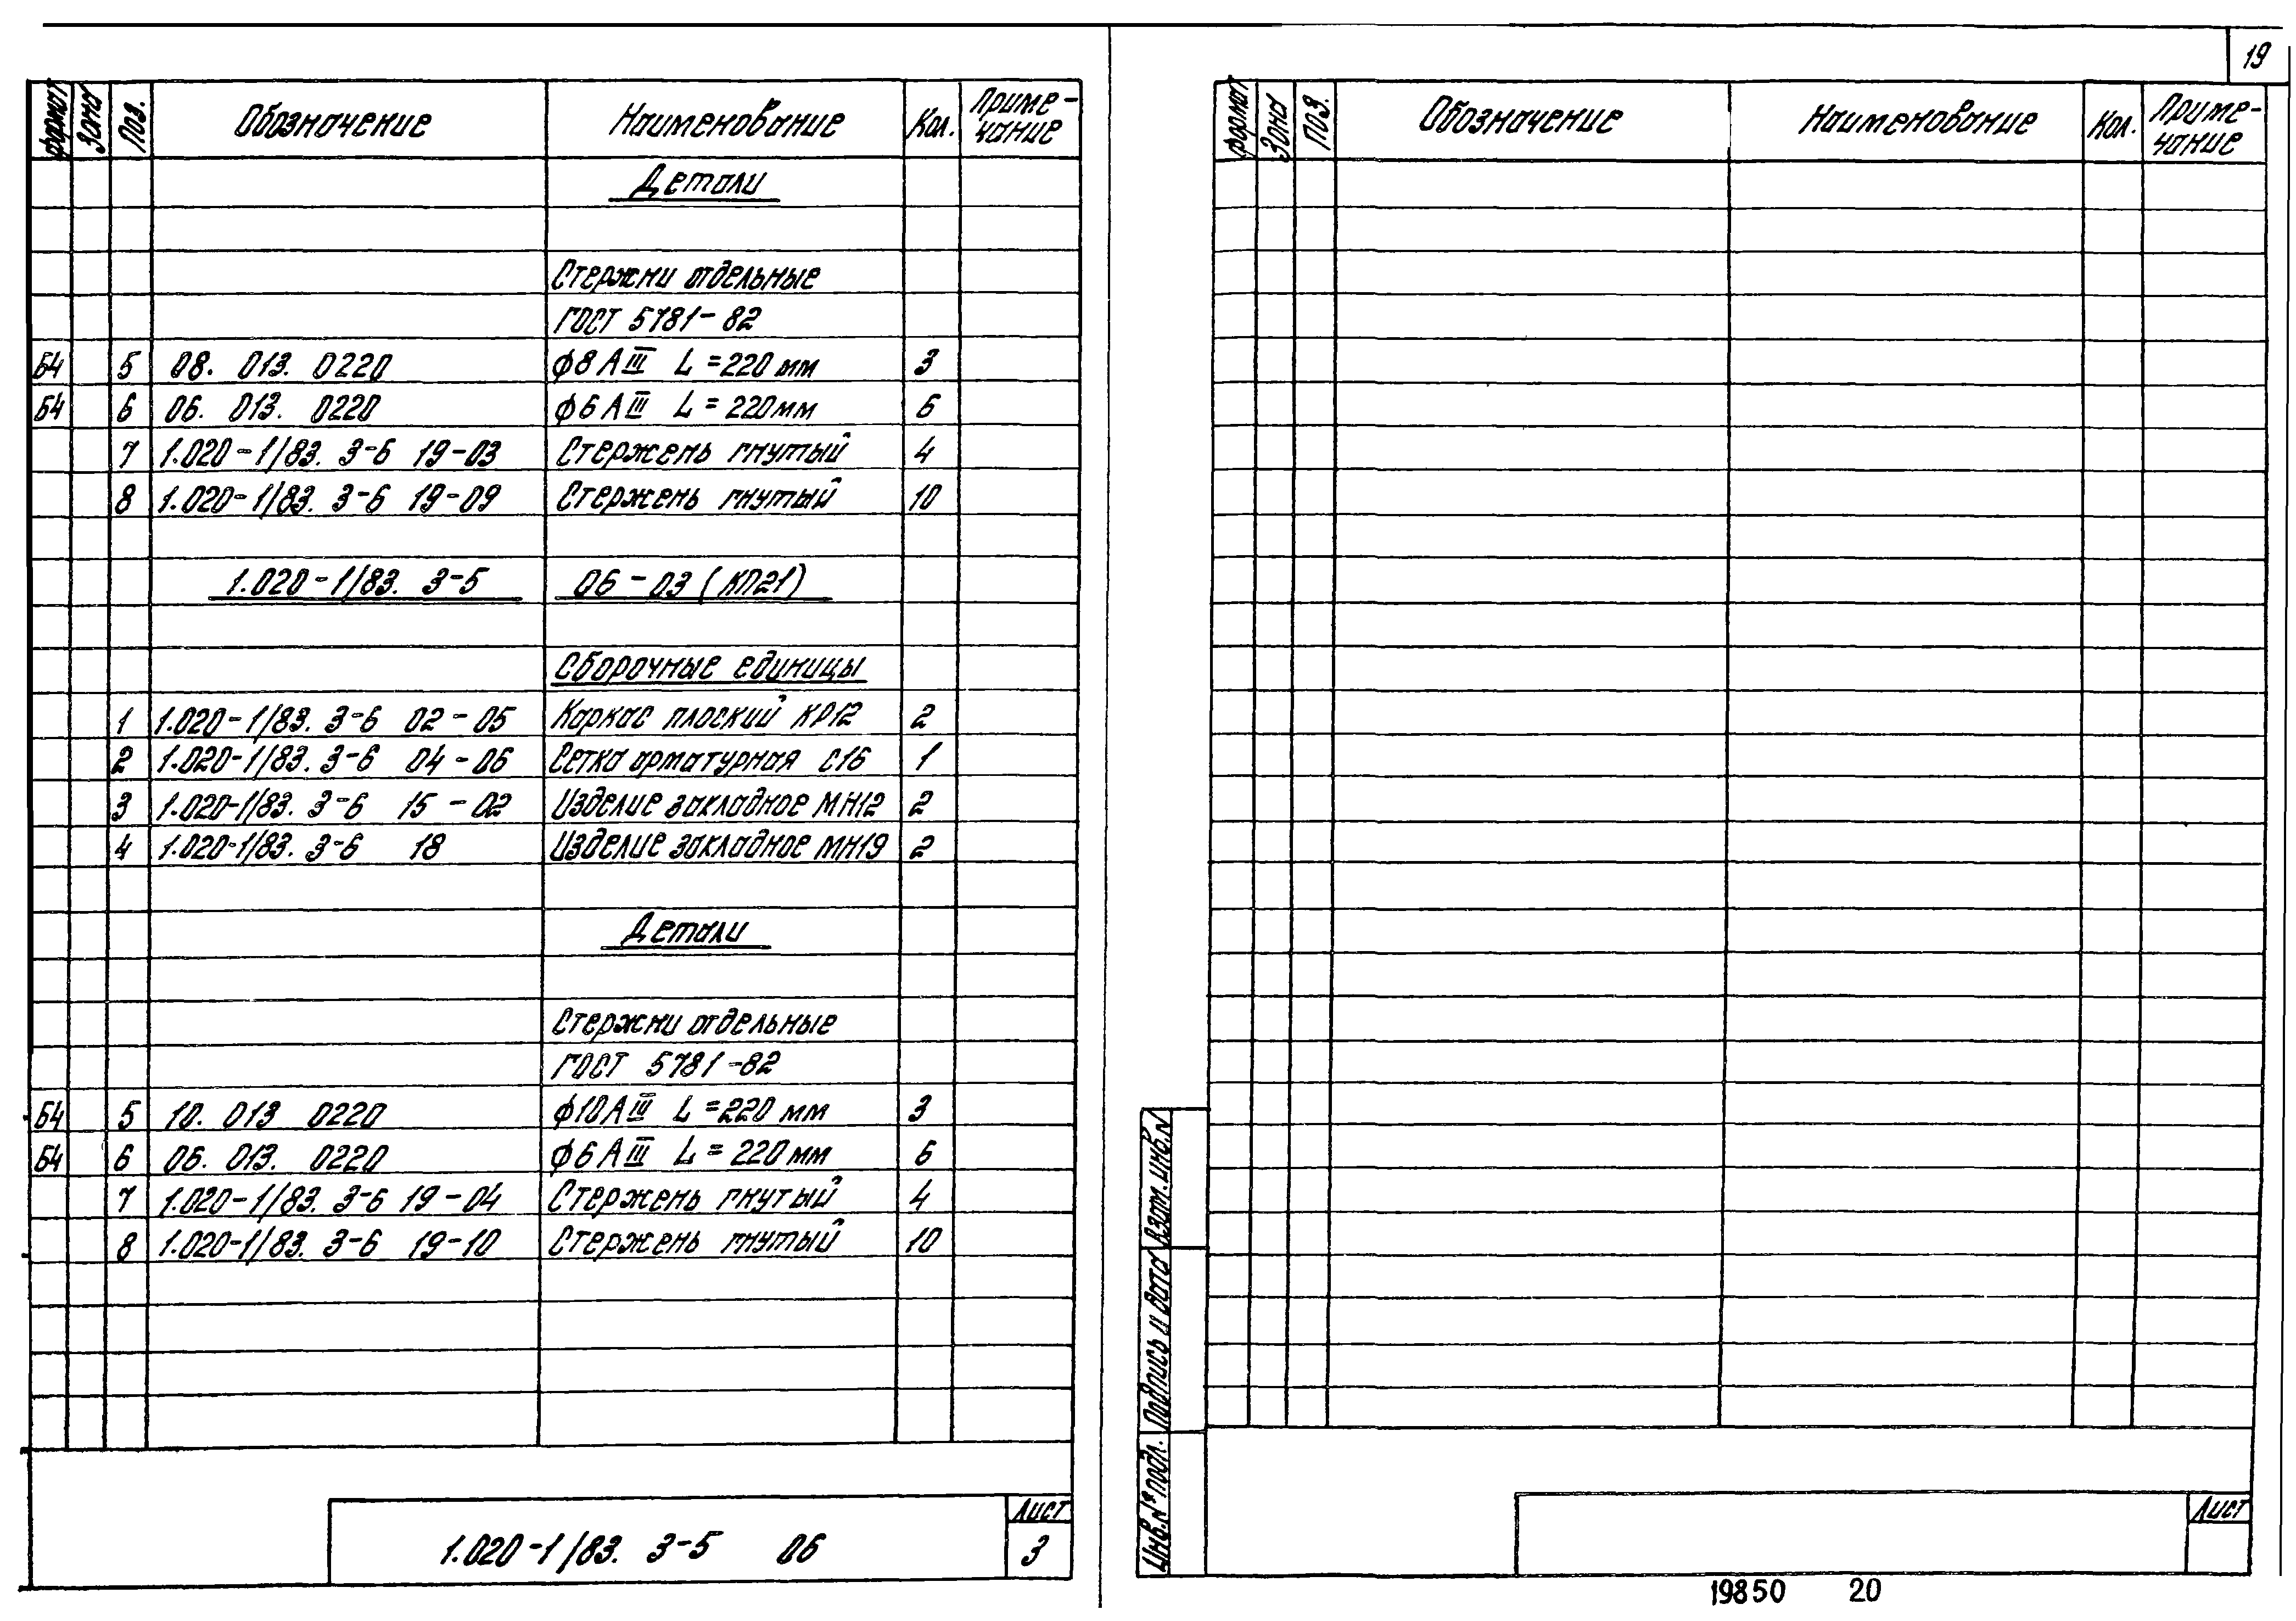 19
Формат Зона Поз. Обозначение Наименование Кол. Приме-
чание
Детали
Стержни отдельные
ГОСТ 5781-82
Б4 5 08. 013. 0220 ф8 АIII L=220 мм 3
Б4 6 06. 013. 0220 ф6 АIII L=220 мм 6
7 1.020-1/83. 3-6 19-03 Стержень гнутый 4
8 1.020-1/83. 3-6 19-09 Стержень гнутый 10
1.020-1/83. 3-5 06-03 (КП21)
Сборочные единицы
1 1.020-1/83. 3-6 02-05 Каркас плоский КР12 2
2 1.020-1/83. 3-6 04-06 Сетка арматурная С16 1
3 1.020-1/83. 3-6 15-02 Изделие закладное МН12 2
4 1.020-1/83. 3-6 18 Изделие закладное МН19 2
Детали
Стержни отдельные
ГОСТ 5781-82
Б4 5 10. 013 0220 ф10 АIII L=220 мм 3
Б4 6 06. 013. 0220 ф6 АIII L=220 мм 6
7 1.020-1/83. 3-6 19-04 Стержень гнутый 4
8 1.020-1/83. 3-6 19-10 Стержень гнутый 10
1.020-1/83. 3-5 06
Лист
3
Формат Зона Поз. Обозначение Наименование Кол. Приме-
чание
Взам. инв. N
Подпись и дата
Инв. № подл.
Лист
19850 20